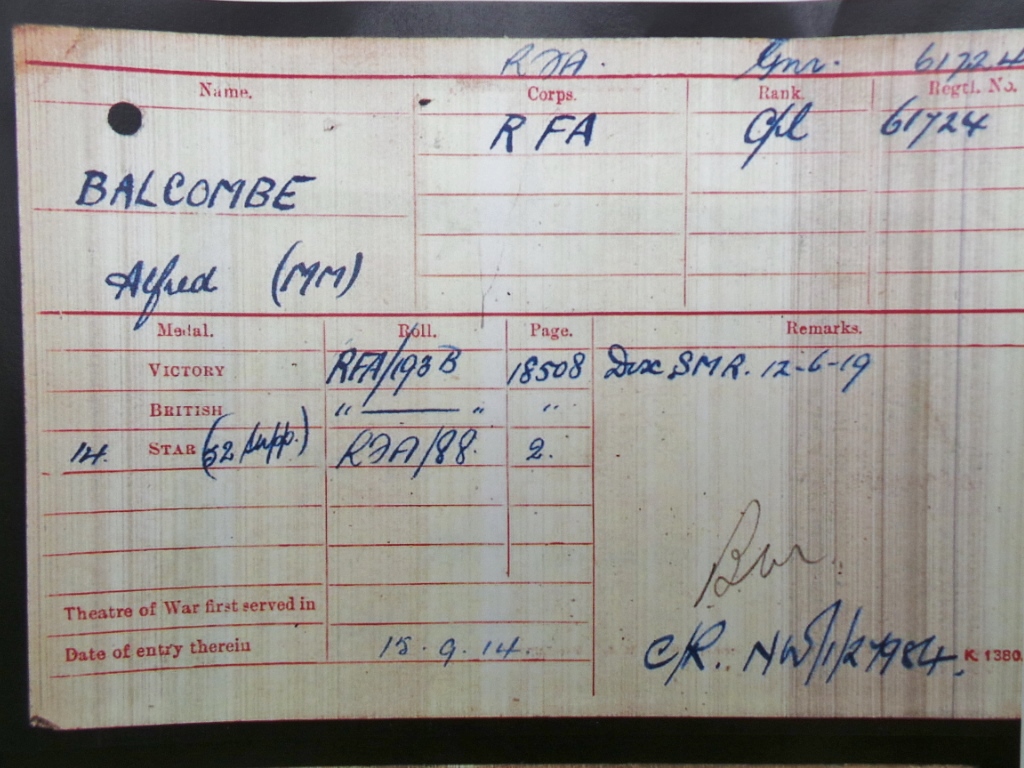 RFA. Gnr. 61724
Name. Corps. Rank. Regtl. No.
RFA Cpl 61724
BALCOMBE
Alfred (MM)
Medal. Roll. Page. Remarks.
VICTORY RFA/193B 18508 Dis SMR. 12-6-19
BRITISH " —— " "
14 STAR (52 supp.) RFA/88. 2.
Theatre of War first served in
Date of entry therein 15.9.14.
C/R. NW/1/27984.
K. 1380.